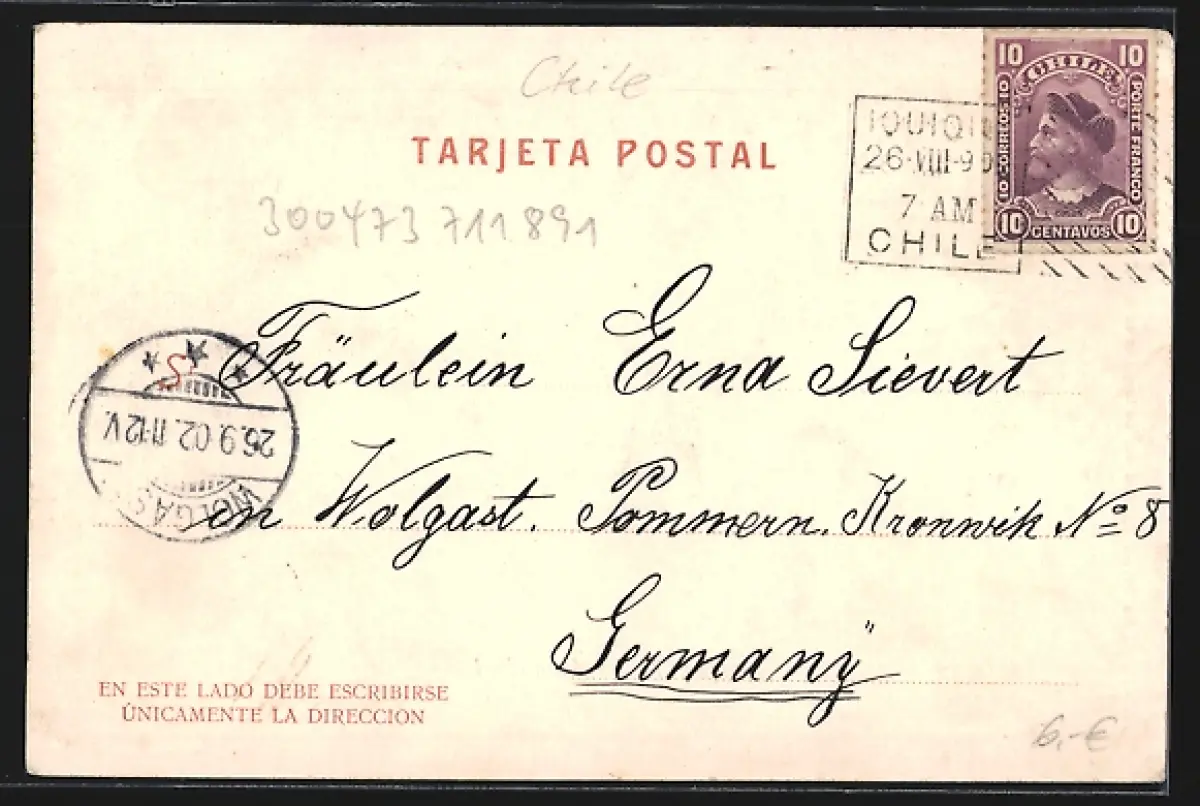 Chile
10 10
CHILE
CORREOS
PORTE FRANCO
10 10
10 CENTAVOS 10
IQUIQU
26·VIII-9
7 AM
CHILE
TARJETA POSTAL
300473 711891
Fräulein Erna Sievert
in Wolgast. Pommern. Kronwik No 8
Germany
26.9.02.11-12V.
WOLGAS
EN ESTE LADO DEBE ESCRIBIRSE
ÚNICAMENTE LA DIRECCION
6,-€